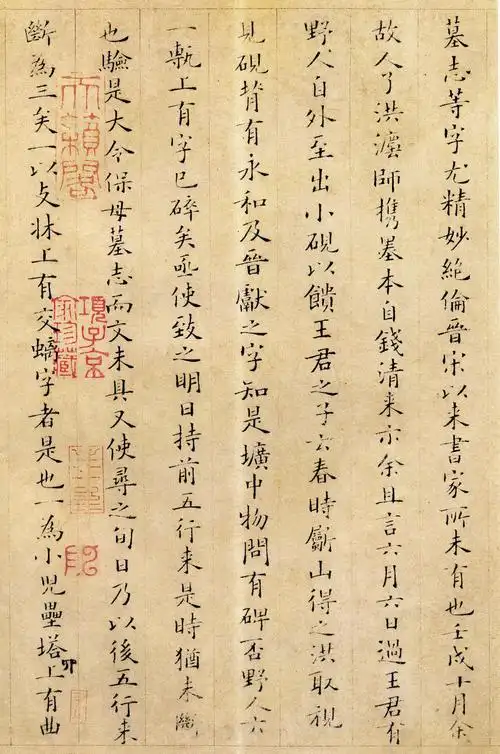 墓志等字尤精妙絶倫晉宋以来書家所未有也壬戌十月余
故人了洪灋師携墨本自錢清来示余且言六月六日過王君有
野人自外至出小硯以饋王君之子云春時斸山得之洪取視
見硯背有永和及晉獻之字知是壙中物問有碑否野人云
一甎上有字已碎矣亟使致之明日持前五行来是時猶未斷
也驗是大令保母墓志而文未具又使尋之旬日乃以後五行来
斷為三矣一以支牀上有交螭字者是也一為小兒壘塔上有曲
天籟閣
項子京家珍藏